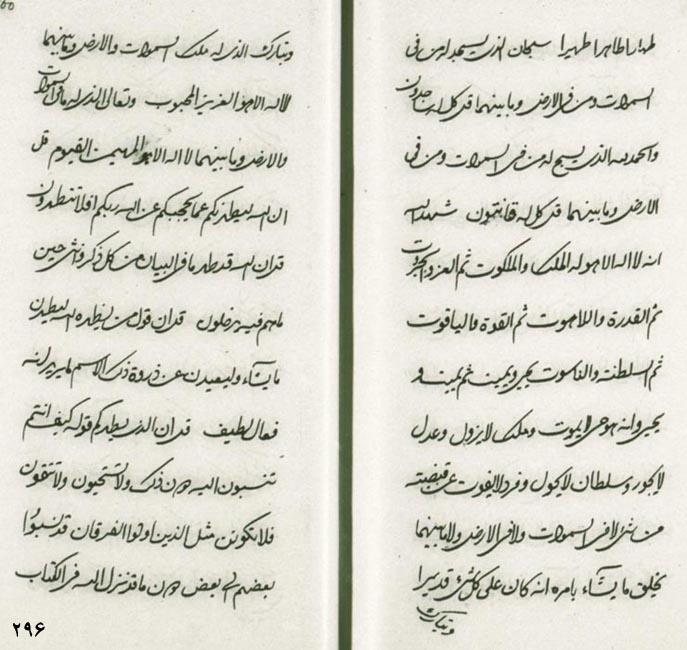 طهارا طاهرا طهيرا سبحان الذي يسجد له من في
السموات ومن في الارض وما بينهما قل كل له ساجدون
والحمد لله الذي يسبح له من في السموات ومن في
الارض وما بينهما قل كل له قانتون شهد الله
انه لا اله الا هو له الملك والملكوت ثم العز والجبروت
ثم القدرة واللاهوت ثم القوة والياقوت
ثم السلطنة والناسوت يحيي ويميت ثم يميت و
يحيي وانه هو حي لا يموت وملك لا يزول وعدل
لا يجور وسلطان لا يحول وفرد لا يفوت عن قبضته
من شئ لا في السموات ولا في الارض ولا ما بينهما
يخلق ما يشآء بامره انه كان على كل شئ قديرا
وتبارك
وتبارك الذي له ملك السموات والارض وما بينهما
لا اله الا هو العزيز المحبوب وتعالى الذي له ما في السموات
والارض وما بينهما لا اله الا هو المهيمن القيوم قل
ان الله ليطهرنكم عما يحجبكم عن الله ربكم افلا تتطهرون
قل ان الله قد طهر ما في البيان من كل ذكر وانثى حين
ما هم فيه يدخلون قل ان قول من يظهره الله ليطهرن
ما يشآء وليبعدن عن ذروة ذلك الاسم ما يريد انه
فعال لطيف قل ان الذي يطهركم قوله كيف انتم
تنسبون اليه دون ذلك ولا تستحيون ولا تتقون
فلا تكونن مثل الذين اوتوا الفرقان قد نسبوا
بعضهم الى بعض دون ما قد نزل الله في الكتاب
۲۹۶